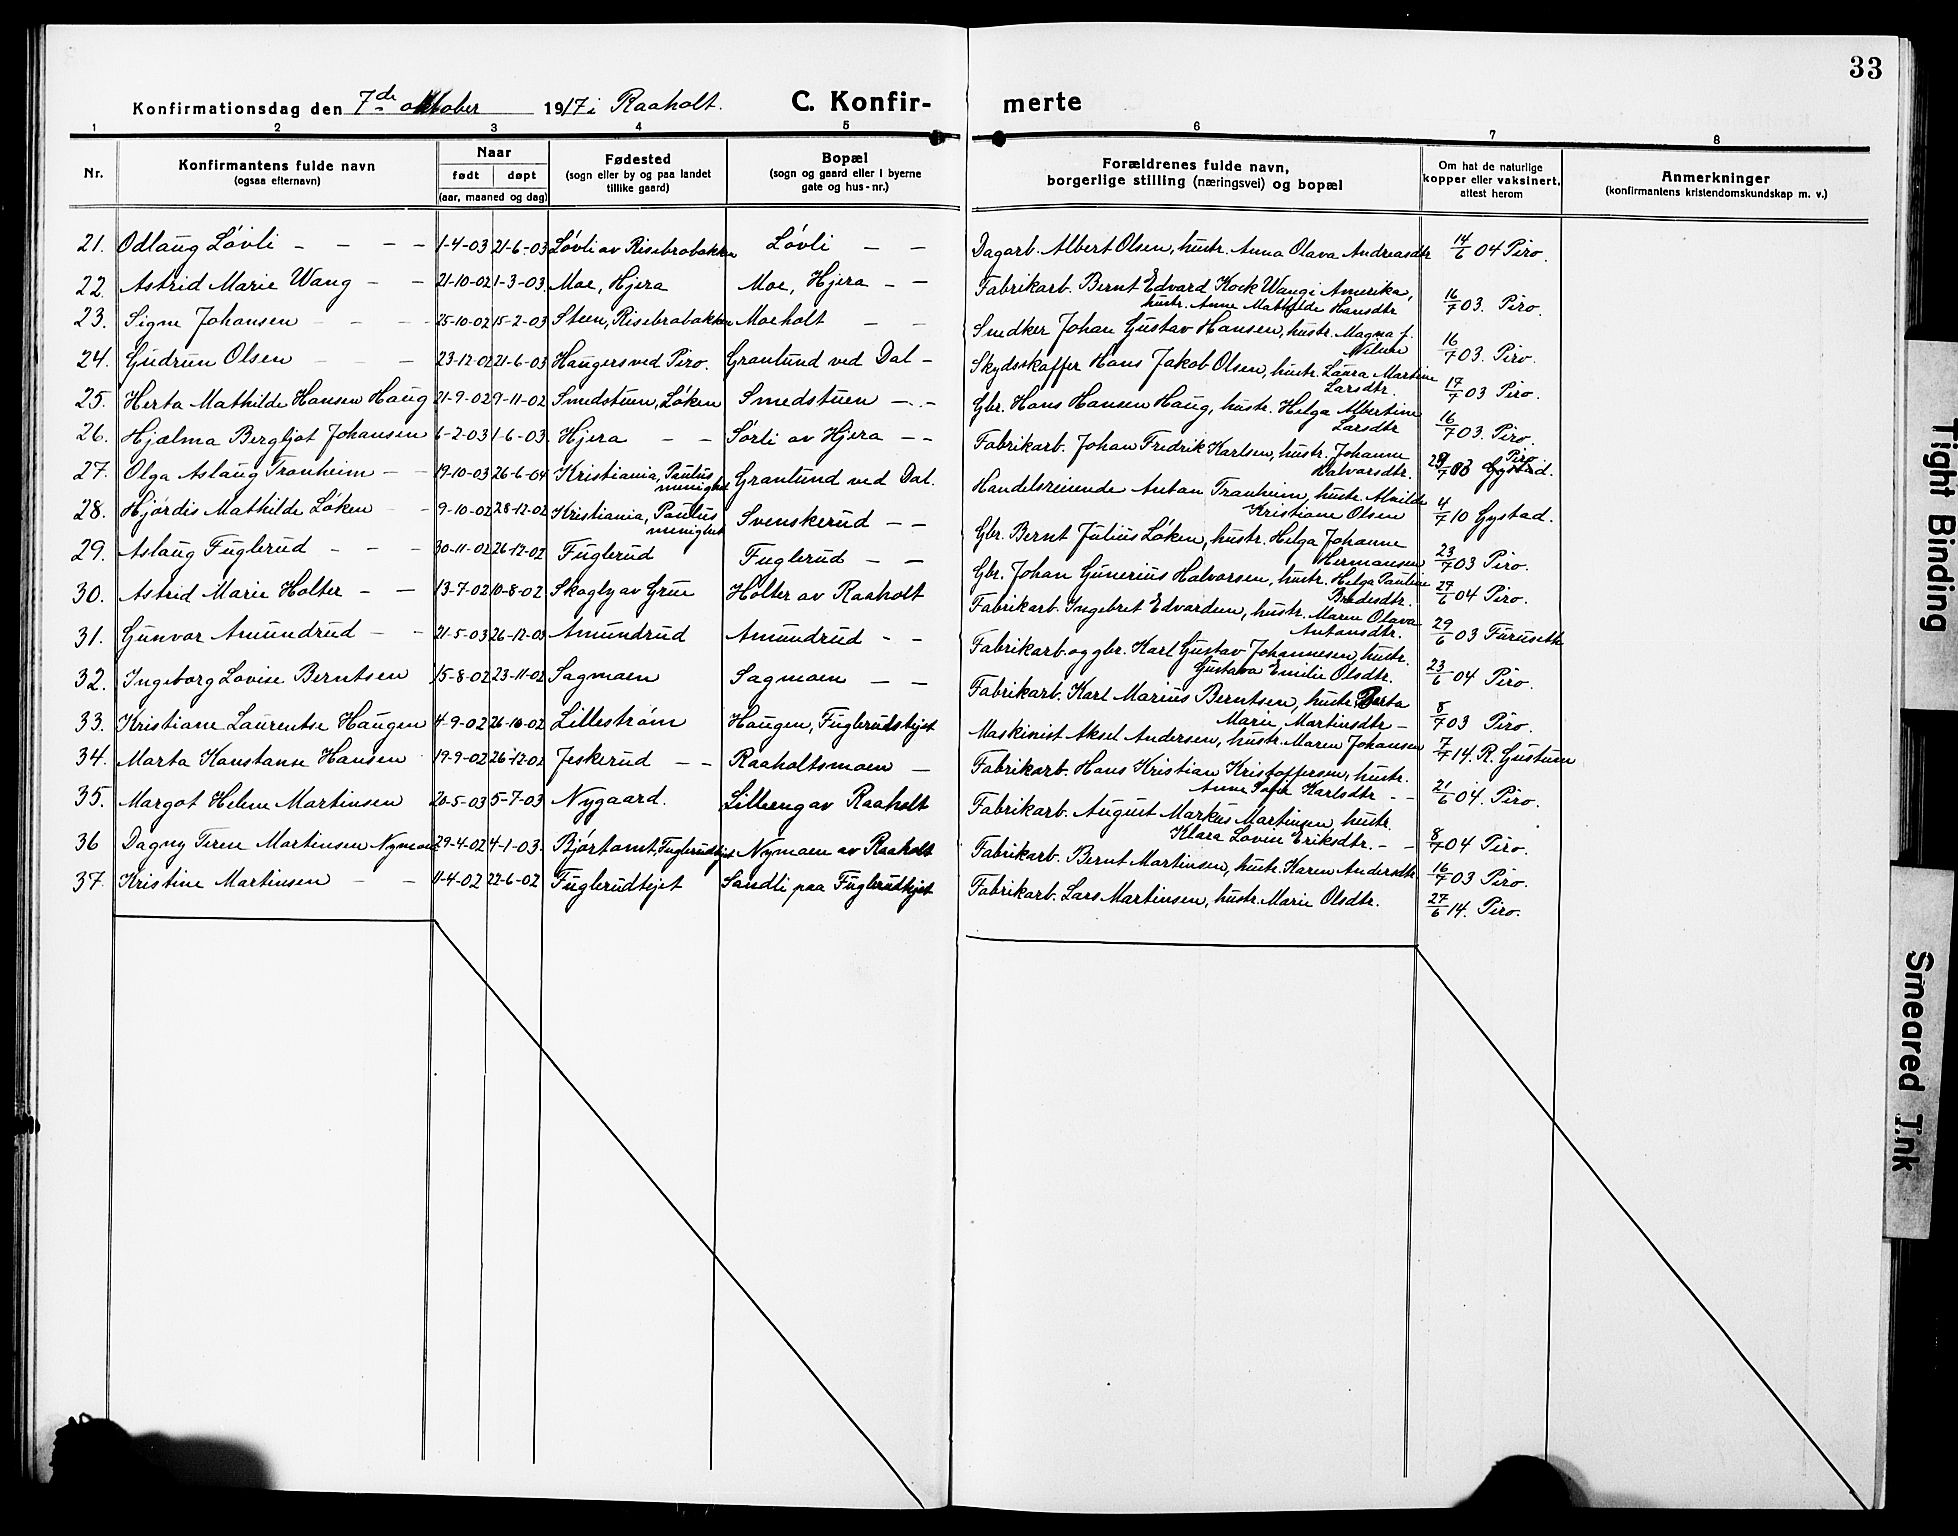 33
Konfirmationsdag den 7de oktober 1917 i Raaholt. C. Konfir- merte
1 2 3 4 5 6 7 8
Nr. Konfirmantens fulde navn (ogsaa efternavn) Naar født døpt (aar, maaned og dag) Fødested (sogn eller by og paa landet tillike gaard) Bopæl (sogn og gaard eller i byerne gate og hus-nr.) Forældrenes fulde navn, borgerlige stilling (næringsvei) og bopæl Om hat de naturlige kopper eller vaksinert, attest herom Anmerkninger (konfirmantens kristendomskundskap m. v.)
21. Odlaug Løvli - - - - 1-4-03 21-6-03 Løvli av Risebrobakken Løvli - - Dagarb. Albert Olsen, hustr. Anna Olava Andreasdtr 14/6 04 Piro.
22. Astrid Marie Wang - - 21-10-02 1-3-03. Moe, Hjera Moe, Hjera - - Fabrikarb. Bernt Edvard Kock Wang i Amerika,
hustr. Anne Mathilde Hansdtr 16/7 03. Piro.
23. Signe Johansen - - - 25-10-02 15-2-03 Steen, Risebrobakken Moeholt - - Snedker Johan Gustav Hansen, hustr. Magna f.
Nilsen 16/7 03. Piro.
24. Gudrun Olsen - - - 23-12-02 21-6-03 Haugers ved Piro. Granlund ved Dal - Skydsskaffer Hans Jakob Olsen, hustr. Laura Martine
Larsdtr. 17/7 03. Piro.
25. Herta Mathilde Hansen Haug 21-9-02 9-11-02 Smedstuen, Løken Smedstuen - - Gbr. Hans Hansen Haug, hustr. Helga Albertine
Larsdtr 16/7 03. Piro.
26. Hjalma Bergljot Johansen 6-2-03 1-6-03. Hjera - - Sørli av Hjera - - Fabrikarb. Johan Fredrik Karlsen, hustr. Johanne
Halvorsdtr. Piro
27. Olga Aslaug Tranheim - - 19-10-03 26-6-04 Kristiania, Paulus
menighet Granlund ved Dal. Handelsreisende Anton Tranheim, hustr. Alvilde
Kristiane Olsen 4/7 10 Gystad.
28. Hjørdis Mathilde Løken - 9-10-02 28-12-02 Kristiania, Paulus
menighet Svenskerud - - Gbr. Bernt Julius Løken, hustr. Helga Johanne
Hermansen 23/7 03 Piro.
29. Aslaug Fuglerud - - - 30-11-02 26-12-02 Fuglerud Fuglerud - - Gbr. Johan Gunerius Halvorsen, hustr. Helga Pauline
Bredesdtr. 27/6 04 Piro.
30. Astrid Marie Holter - - 13-7-02 10-8-02 Skogly av Grue Holter av Raaholt Fabrikarb. Ingebret Edvardsen, hustr. Maren Olava
Antonsdtr. 29/6 03 Furuseth
31. Gunvor Amundrud - - 21-5-03 26-12-03 Amundrud Amundrud - - Fabrikarb. og gbr. Karl Gustav Johannesen, hustr.
Gustava Emilie Olsdtr. 23/6 04 Piro.
32. Ingeborg Lovise Berntsen 15-8-02 23-11-02 Sagmoen Sagmoen - - Fabrikarb. Karl Marius Berntsen, hustr. Berta
Marie Martinsdtr - 8/7 03 Piro.
33. Kristiane Laurentse Haugen 4-9-02 26-10-02 Lillestrøm Haugen, Fuglerudsejet Maskinist Aksel Andersen, hustr. Maren Johansen 7/7 14. R. Gustum
34. Marta Konstanse Hansen 19-9-02 26-12-02 Jeskerud - - Raaholtsmoen - Fabrikarb. Hans Kristian Kristoffersen, hustr.
Anne Sofie Karlsdtr - - 21/6 04. Piro.
35. Margot Helene Martinsen 20-5-03 5-7-03 Nygaard. Lilleeng av Raaholt Fabrikarb. August Markus Martinsen, hustr.
Klara Lovise Eriksdtr. - - 8/7 04 Piro.
36 Dagny Terese Martinsen Nymoen 29-4-02 4-1-03. Bjørtomt, Fuglerudejet Nymoen av Raaholt Fabrikarb. Bernt Martinsen, hustr. Karen Andersdtr 16/7 03 Piro.
37. Kristine Martinsen - - 11-4-02 22-6-02 Fuglerudejet Sandli paa Fuglerudejet Fabrikarb. Lars Martinsen, hustr. Marie Olsdtr. 27/6 14. Piro.
Tight Binding
Smeared Ink